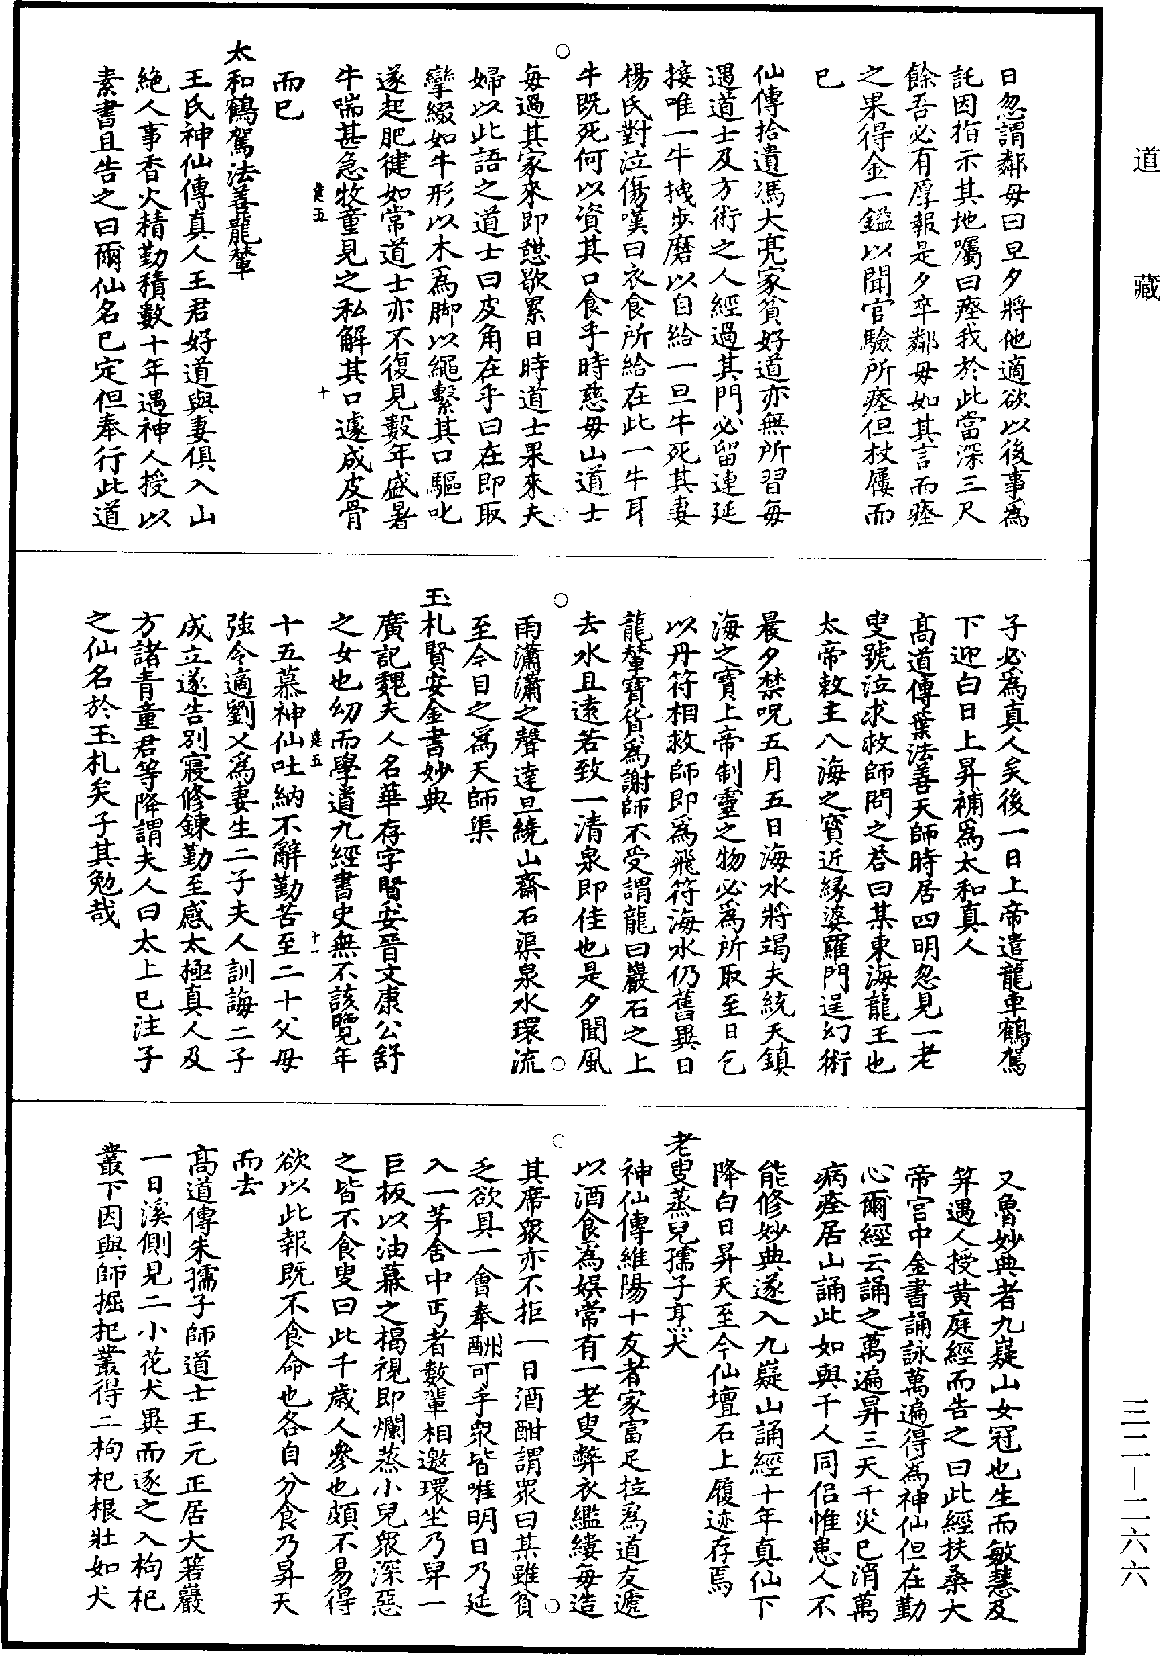 道藏
日忽謂鄰母曰旦夕將他適欲以後事為
託因指示其地囑曰瘞我於此當深三尺
餘吾必有厚報是夕卒鄰母如其言而瘞
之果得金一鎰以聞官驗所瘞但杖屨而
已
仙傳拾遺馮大亮家貧好道亦無所習每
遇道士及方術之人經過其門必留連延
接唯一牛拽步磨以自給一旦牛死其妻
楊氏對泣傷嘆曰衣食所給在此一牛耳
牛既死何以資其口食乎時慈母山道士
每過其家來即憇歇累日時道士果來夫
婦以此語之道士曰皮角在乎曰在即取
攣綴如牛形以木為脚以繩繫其口驅叱
遂起肥健如常道士亦不復見數年盛暑
牛喘甚急牧童見之私解其口遽成皮骨
而已
太和鶴駕法善龍輦
王氏神仙傳真人王君好道與妻俱入山
絶人事香火精勤積數十年遇神人授以
素書且告之曰爾仙名已定但奉行此道
子必為真人矣後一日上帝遣龍車鶴駕
下迎白日上昇補為太和真人
高道傳葉法善天師時居四明忽見一老
叟號泣求救師問之荅曰某東海龍王也
太帝敕主八海之寳近緣婆羅門逞幻術
晨夕禁呪五月五日海水將竭夫統天鎮
海之寳上帝制靈之物必為所取至日乞
以丹符相救師即為飛符海水仍舊異日
龍輦寳貨為謝師不受謂龍曰巖石之上
去水且遠若致一清泉即佳也是夕聞風
雨瀟瀟之聲達旦繞山齋石渠泉水環流
至今目之為天師渠
玉札賢安金書妙典
廣記魏夫人名華存字賢安晉文康公舒
之女也幼而學道九經書史無不該覽年
十五慕神仙吐納不辭勤苦至二十父母
強令適劉乂為妻生二子夫人訓誨二子
成立遂告別寢修鍊勤至感太極真人及
方諸青童君等降謂夫人曰太上已注子
之仙名於玉札矣子其勉哉
又魯妙典者九嶷山女冠也生而敏慧及
笄遇人授黃庭經而告之曰此經扶桑大
帝宮中金書誦詠萬遍得為神仙但在勤
心爾經云誦之萬遍昇三天千災已消萬
病痊居山誦此如與千人同侣惟患人不
能修妙典遂入九嶷山誦經十年真仙下
降白日昇天至今仙壇石上履迹存焉
老叟蒸兒孺子烹犬
神仙傳維陽十友者家富足拉為道友遞
以酒食為娯常有一老叟弊衣繿縷每造
其席衆亦不拒一日酒酣謂衆曰某雖貧
乏欲具一會奉酬可乎衆皆唯明日乃延
入一茅舍中丐者數輩相邀環坐乃舁一
巨板以油幕之揭視即爛蒸小兒衆深惡
之皆不食叟曰此千歲人參也頗不易得
欲以此報既不食命也各自分食乃昇天
而去
高道傳朱孺子師道士王元正居大箬巖
一日溪側見二小花犬異而逐之入枸杞
叢下因與師掘杞叢得二枸杞根壯如犬
三二—二六六